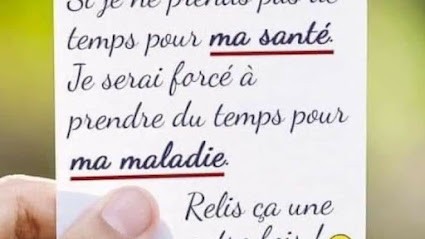 Si je ne prends pas de
temps pour ma santé.
Je serai forcé à
prendre du temps pour
ma maladie.
Relis ça une